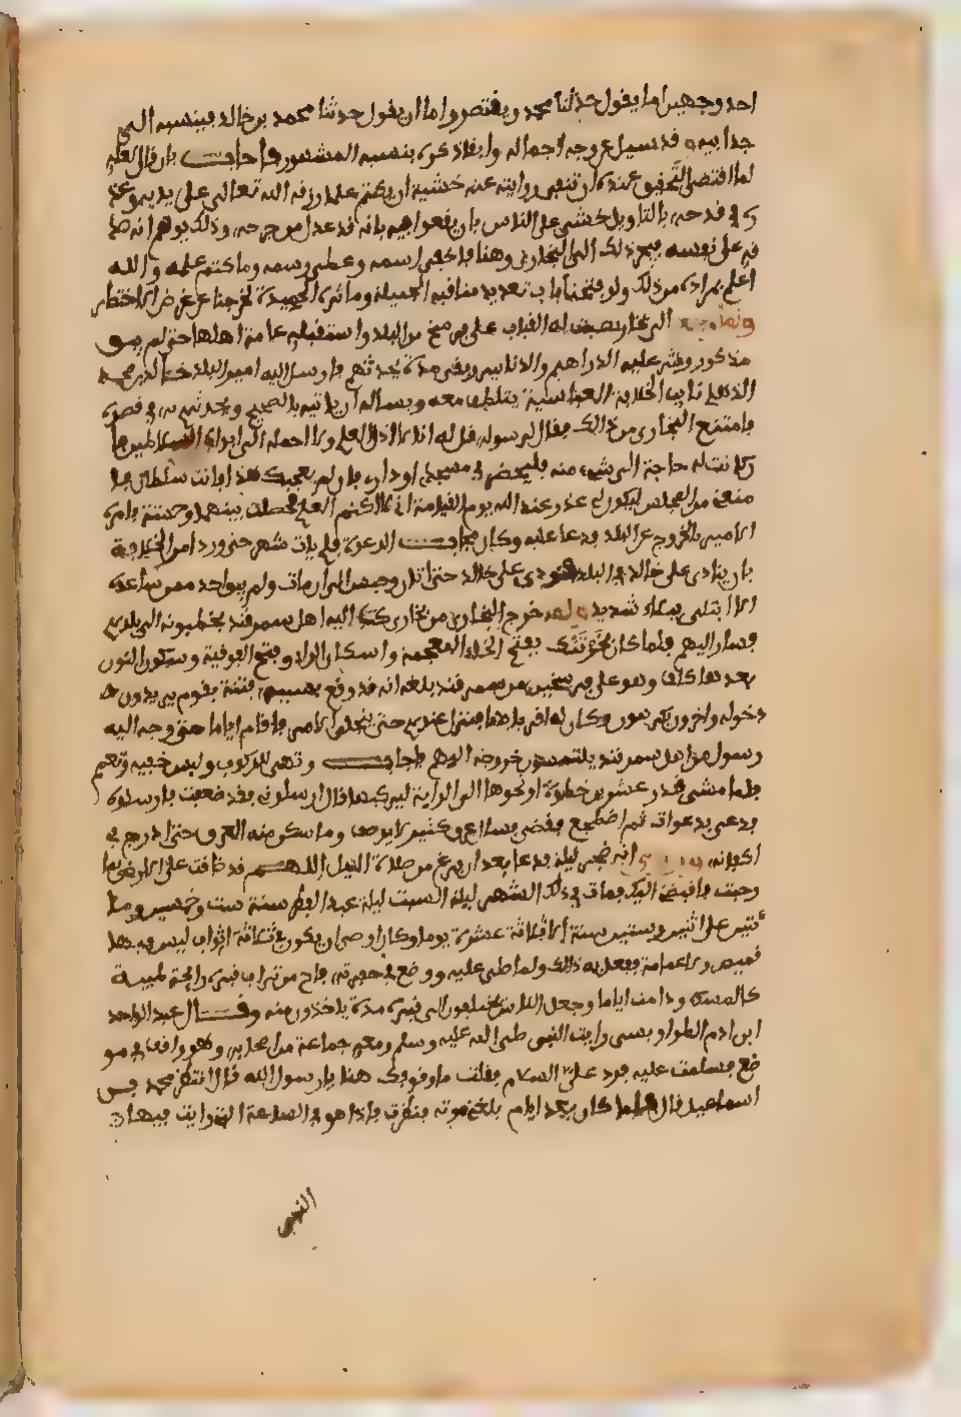 احد وجهين اما يقول حدثنا محمد ويقتصر واما ان يقول حدثنا محمد بن خالد فينسبه الى
جد ابيه وقد سيل عن وجه اجماله وابقاء ذكره بنسبه المشهور فاجاب بان قال لعله
لما اقتضى التحقيق عنده ان تبقى روايته عنه خشية ان يكتم علما رزقه الله تعالى على يديه وعذره
في قدحه بالتاويل خشي على الناس بان يقعوا فيه بانه قد عدل من جرحه وذلك يوهم انه صد
قه على نفسه فيجر ذلك الى البخاري وهنا فاخفى اسمه وغطى رسمه وما كتم علمه والله
اعلم بمراده من ذلك ولو فتحنا باب تعديد مناقبه الجميلة وماثره الحميدة لخرجنا عن غرض الاختصار
ولما رجع الى بخارى نصبت له القباب على فرسخ من البلد واستقبله عامة اهلها حتى لم يبق
مذكور ونثر عليه الدراهم والدنانير وبقي مدة يحدثهم فارسل اليه امير البلد خالد بن محمد
الذهلي نايب الخلافة العباسية يتلطف معه ويساله ان ياتيه بالصحيح ويحدثهم به في قصره
فامتنع البخاري من ذلك وقال لرسوله قل له انا لا اذل العلم ولا احمله الى ابواب السلاطين فا
ن كانت له حاجة الى شيء منه فليحضر في مسجدي او داري فان لم يعجبك هذا فانت سلطان فا
منعني من المجلس ليكون لي عذر عند الله يوم القيامة اني لا اكتم العلم فحصلت بينهما وحشة فامره
الامير بالخروج عن البلد فدعا عليه وكان مجاب الدعوة فلم يات شهر حتى ورد امر الخلافة
بان ينادى على خالد في البلد فنودي على خالد حتى اتان وحبس الى ان مات ولم يبق احد ممن ساعده
الا ابتلي ببلاء شديد ولما خرج البخاري من بخارى كتب اليه اهل سمرقند يخطبونه الى بلدهم
فسار اليهم فلما كان بخرتنك بفتح الخاء المعجمة واسكان الراء وفتح الفوقية وسكون النون
بعدها كاف وهو على فرسخين من سمرقند بلغه انه قد وقع بسببه فتنة فقوم يريدون
دخوله واخرون يكرهون وكان له اقرباء بها فنزل عندهم حتى ينجلي الامر فاقام اياما حتى وجه اليه
رسول من اهل سمرقند يلتمسون خروجه اليهم فاجاب وتهيا للركوب ولبس خفيه وتعمم
فلما مشى قدر عشرين خطوة او نحوها الى الراية ليركبها قال ارسلوني فقد ضعفت فارسلوه
فدعى بدعوات ثم اضطجع فقضى فسال عرق كثير لا يوصف وما سكن منه العرق حتى ادرج في
اكفانه انه ضجر ليلة فدعا بعد ان فرغ من صلاة الليل اللهم قد ضاقت علي الارض بما
رحبت فاقبضني اليك فمات في ذلك الشهر ليلة السبت ليلة عيد الفطر سنة ست وخمسين وما
ئتين على اثنين وستين سنة الا ثلاثة عشرة يوما وكان اوصى ان يكون في ثلاثة اثواب ليس فيها
قميص ولا عمامة ففعل به ذلك ولما صلي عليه ووضع في حفرته فاح من تراب قبره رايحة طيبة
كالمسك ودامت اياما وجعل الناس يختلفون الى قبره مدة ياخذون منه وقال عبد الواحد
ابن ادم الطواويسي رايت النبي صلى الله عليه وسلم ومعه جماعة من اصحابه وهو واقف في مو
ضع فسلمت عليه فرد علي السلام فقلت ما وقوفك هنا يا رسول الله قال انتظر محمد بن
اسماعيل قال فلما كان بعد ايام بلغني موته فنظرت فاذا هو في الساعة التي رايت فيها
النبي